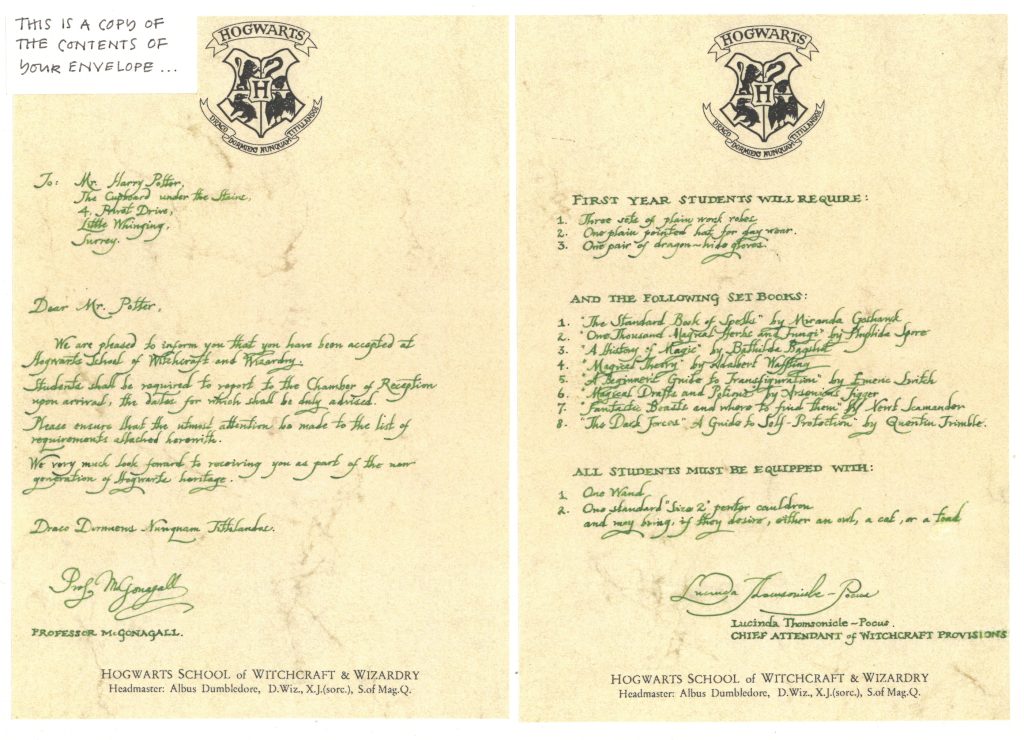 THIS IS A COPY OF
THE CONTENTS OF
YOUR ENVELOPE...
HOGWARTS
H
DRACO DORMIENS NUNQUAM TITILLANDUS
To: Mr. Harry Potter,
The Cupboard under the Stairs,
4, Privet Drive,
Little Whinging,
Surrey.
Dear Mr. Potter,
We are pleased to inform you that you have been accepted at
Hogwarts School of Witchcraft and Wizardry.
Students shall be required to report to the Chamber of Reception
upon arrival, the dates for which shall be duly advised.
Please ensure that the utmost attention be made to the list of
requirements attached herewith.
We very much look forward to receiving you as part of the new
generation of Hogwarts heritage.
Draco Dormiens Nunquam Titillandus.
Prof. McGonagall
PROFESSOR McGONAGALL.
HOGWARTS SCHOOL of WITCHCRAFT & WIZARDRY
Headmaster: Albus Dumbledore, D.Wiz., X.J.(sorc.), S.of Mag.Q.
HOGWARTS
H
DRACO DORMIENS NUNQUAM TITILLANDUS
FIRST YEAR STUDENTS WILL REQUIRE:
1. Three sets of plain work robes
2. One plain pointed hat for day wear.
3. One pair of dragon-hide gloves.
AND THE FOLLOWING SET BOOKS:
1. "The Standard Book of Spells" by Miranda Goshawk
2. "One Thousand Magical Herbs and Fungi" by Phyllida Spore
3. "A History of Magic" by Bathilda Bagshot
4. "Magical Theory" by Adalbert Waffling
5. "A Beginners Guide to Transfiguration" by Emeric Switch
6. "Magical Drafts and Potions" by Arsenius Jigger
7. "Fantastic Beasts and where to find them" by Newt Scamander
8. "The Dark Forces" A Guide to Self-Protection" by Quentin Trimble.
ALL STUDENTS MUST BE EQUIPPED WITH:
1. One Wand
2. One standard "Size 2" pewter cauldron
and may bring, if they desire, either an owl, a cat, or a toad
Lucinda Thomsonicle-Pocus
Lucinda Thomsonicle-Pocus.
CHIEF ATTENDANT of WITCHCRAFT PROVISIONS
HOGWARTS SCHOOL of WITCHCRAFT & WIZARDRY
Headmaster: Albus Dumbledore, D.Wiz., X.J.(sorc.), S.of Mag.Q.